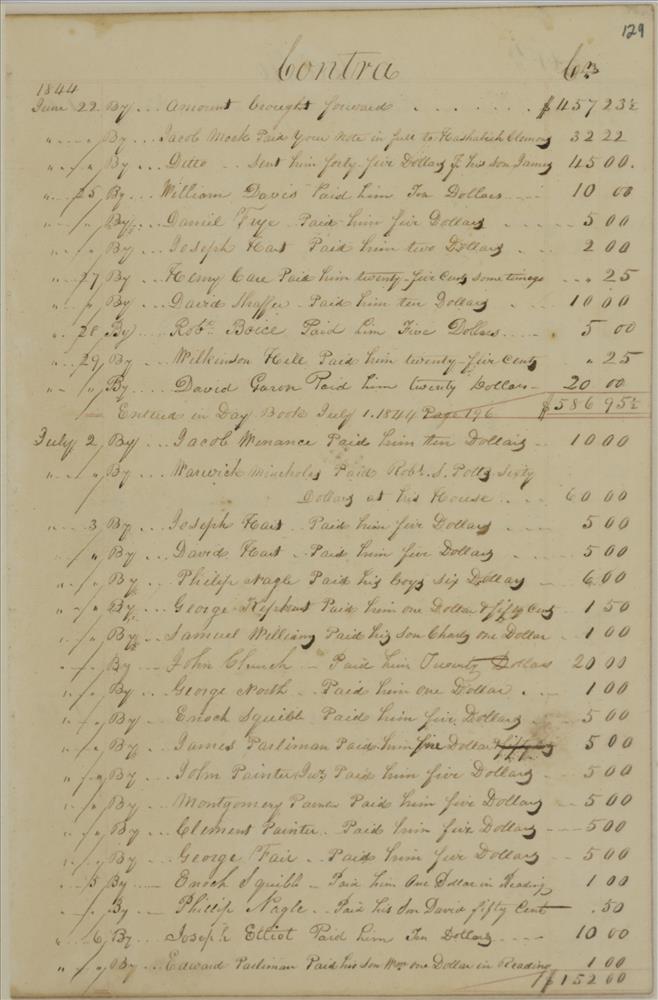 129
Contra Crs
1844
June 22 By ... Amount brought forward . . . . . . . $457 23½
" " " By ... Jacob Mock Paid your Note in full to Clemons 32 22
" " " By ... Ditto .. Sent him forty-five Dollars p his son James 45 00.
" " 25 By ... William Davis Paid him Ten Dollars .... 10 00
" " " By ... Daniel Frye .. Paid him five Dollars . . . . 5 00
" " " By ... Joseph Hart Paid him two Dollars . . . 2 00
" " 27 By ... Henry Care Paid him twenty-five Cents some time ago .. " 25
" " " By ... David Shaffer .. Paid him ten Dollars . 10 00
" " 28 By .... Robt. Boice Paid him Five Dollars ..... 5 00
" " 29 By ... Wilkinson Hill Paid him twenty-five Cents " 25
" " " By .... David Garon Paid him twenty Dollars - 20 00
Entered in Day Book July 1. 1844 Page 196 $586 95½
July 2 By ... Jacob Winance Paid him ten Dollars .. 10 00
" " " By ... Warwick Paid Robt. S. Potts Sixty
Dollars at his House . . . 60 00
" " 3 By ... Joseph Hart .. Paid him five Dollars . . . . 5 00
" " " By ... David Hart .. Paid him five Dollars . . . . 5 00
" " " By ... Philip Nagle Paid his boys six Dollars - 6.00
" " " By ... George Paid him one Dollar & fifty Cents 1 50
" " " By ... Samuel Williams Paid his son Charls one Dollar . 1 00
" " " By .... John Church .. Paid him Twenty Dollars 20 00
" " " By ... George North .. Paid him one Dollar . .. 1 00
" " " By .. Enoch Squibb Paid him five Dollars . .. 5 00
" " " By ... James Parliman Paid him five Dollars 5 00
" " " By .. John Painter Junr. Paid him five Dollars - 5 00
" " " By ... Montgomery Painter Paid him five Dollars - 5 00
" " " By ... Clement Painter .. Paid him five Dollars --- 5 00
" " " By .. George Fair .. Paid him five Dollars -- 5 00
" " 5 By .... Enoch Squibb - Paid him One Dollar in Reading 1 00
" " " By --- Phillip Nagle .. Paid his Son David fifty Cent . 50
" " 6 By ... Joseph Elliot Paid him Ten Dollars .... 10 00
" " " By ... Edward Parliman Paid his son Wm one Dollar in Reading 1 00
$152 00